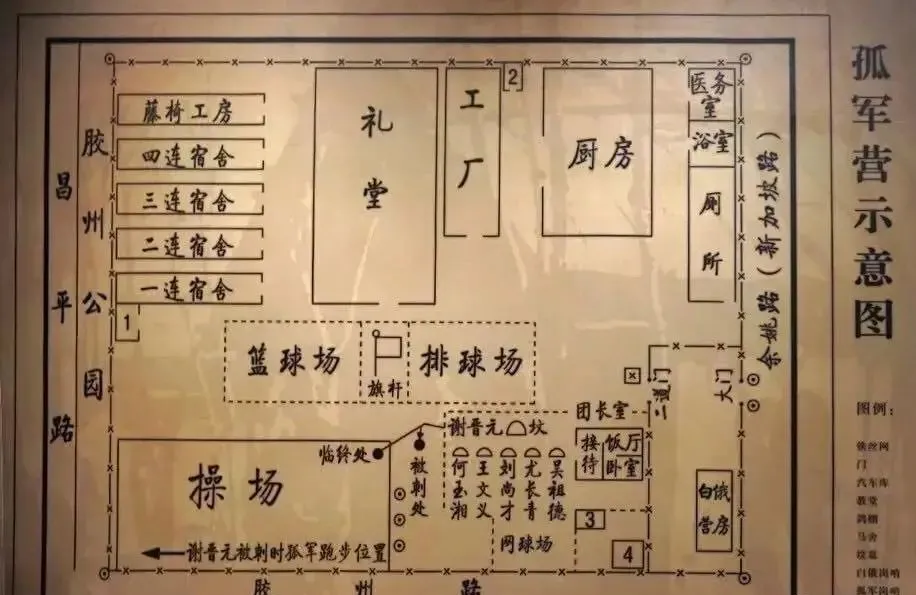 孤军营示意图
昌平路
胶州公园
藤椅工房
四连宿舍
三连宿舍
二连宿舍
一连宿舍
1
礼堂
工厂
2
厨房
医务室
浴室
厕所
余姚路(新加坡路)
篮球场
旗杆
排球场
二道门
大门
团长室
接待
饭厅
卧室
谢晋元 坟
何玉湘
王文义
刘尚才
尤长青
吴祖德
临终处
被刺处
操场
谢晋元被刺时孤军跑步位置
网球场
3
4
白俄营房
胶州路
图例:
铁丝网
门
汽车库
教堂
鸽棚
马舍
坟墓
白俄岗哨
孤军岗哨